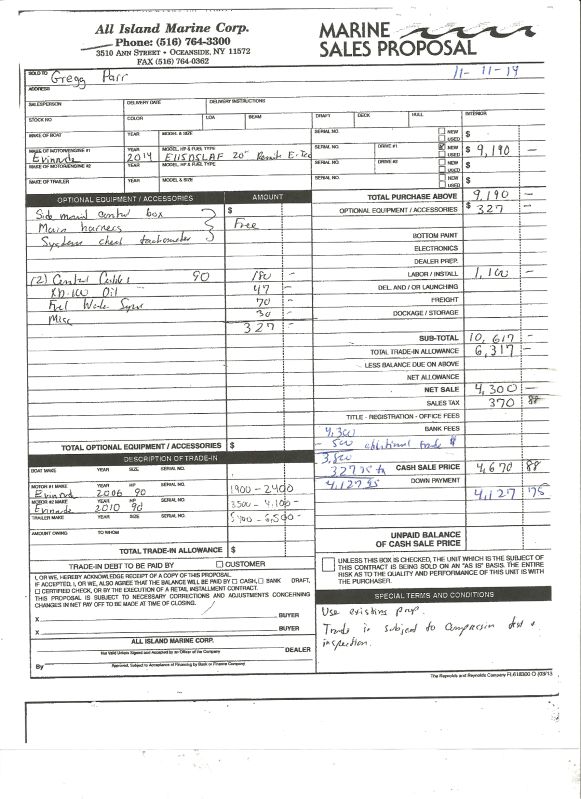 All Island Marine Corp.
Phone: (516) 764-3300
3510 ANN STREET • OCEANSIDE, NY 11572
FAX (516) 764-0362
MARINE
SALES PROPOSAL
SOLD TO Gregg Parr
11-11-14
ADDRESS
SALESPERSON DELIVERY DATE DELIVERY INSTRUCTIONS
STOCK NO COLOR LOA BEAM DRAFT DECK HULL INTERIOR
MAKE OF BOAT YEAR MODEL & SIZE SERIAL NO. NEW USED $
MAKE OF MOTOR/ENGINE #1 YEAR MODEL, HP & FUEL TYPE SERIAL NO. DRIVE #1 NEW USED
Evinrude 2014 E115DSLAF 20" E-Tec $ 9,190 —
MAKE OF MOTOR/ENGINE #2 YEAR MODEL, HP & FUEL TYPE SERIAL NO. DRIVE #2 NEW USED $
MAKE OF TRAILER YEAR MODEL & SIZE SERIAL NO. NEW USED $
OPTIONAL EQUIPMENT / ACCESSORIES AMOUNT
Side mount control box $
Main harness Free
System check tachometer
(2) Control Cables 90 180 —
XD-100 Oil 47 —
Fuel Water Sepr 70 —
Misc 30 —
327 —
TOTAL OPTIONAL EQUIPMENT / ACCESSORIES $
TOTAL PURCHASE ABOVE 9,190 —
OPTIONAL EQUIPMENT / ACCESSORIES $ 327 —
BOTTOM PAINT
ELECTRONICS
DEALER PREP.
LABOR / INSTALL 1,100 —
DEL. AND / OR LAUNCHING
FREIGHT
DOCKAGE / STORAGE
SUB-TOTAL 10,617 —
TOTAL TRADE-IN ALLOWANCE 6,317 —
LESS BALANCE DUE ON ABOVE
NET ALLOWANCE
NET SALE 4,300 —
SALES TAX 370 88
TITLE - REGISTRATION - OFFICE FEES
4,300 BANK FEES
- 500 additional trade $
3,800
327 75 tx CASH SALE PRICE 4,670 88
4,127 75 DOWN PAYMENT
4,127 75
UNPAID BALANCE
OF CASH SALE PRICE
DESCRIPTION OF TRADE-IN
BOAT MAKE YEAR SIZE SERIAL NO.
MOTOR #1 MAKE YEAR HP SERIAL NO.
Evinrude 2006 90 1900 - 2400
MOTOR #2 MAKE YEAR HP SERIAL NO.
Evinrude 2010 90 3500 - 4,100 -
TRAILER MAKE YEAR SIZE SERIAL NO.
5400 - 6,500 -
AMOUNT OWING TO WHOM
TOTAL TRADE-IN ALLOWANCE $
TRADE-IN DEBT TO BE PAID BY CUSTOMER
I, OR WE, HEREBY ACKNOWLEDGE RECEIPT OF A COPY OF THIS PROPOSAL.
IF ACCEPTED, I, OR WE, ALSO AGREE THAT THE BALANCE WILL BE PAID BY CASH, BANK DRAFT,
CERTIFIED CHECK, OR BY THE EXECUTION OF A RETAIL INSTALLMENT CONTRACT.
THIS PROPOSAL IS SUBJECT TO NECESSARY CORRECTIONS AND ADJUSTMENTS CONCERNING
CHANGES IN NET PAY OFF TO BE MADE AT TIME OF CLOSING.
X BUYER
X BUYER
ALL ISLAND MARINE CORP. DEALER
Not Valid Unless Signed and Accepted by an Officer of the Company
By
Approved, Subject to Acceptance of Financing by Bank or Finance Company
UNLESS THIS BOX IS CHECKED, THE UNIT WHICH IS THE SUBJECT OF
THIS CONTRACT IS BEING SOLD ON AN "AS IS" BASIS. THE ENTIRE
RISK AS TO THE QUALITY AND PERFORMANCE OF THIS UNIT IS WITH
THE PURCHASER.
SPECIAL TERMS AND CONDITIONS
Use existing prop.
Trade is subject to compression test &
inspection.
The Reynolds and Reynolds Company FL618300 Q (03/13)